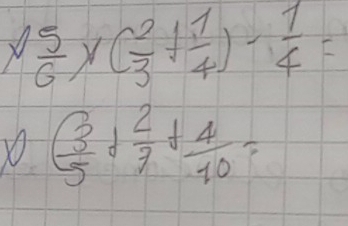 x) 5/6 x (2/3 + 1/4) - 1/4 =
x) (3/5 + 2/7 + 4/10 =